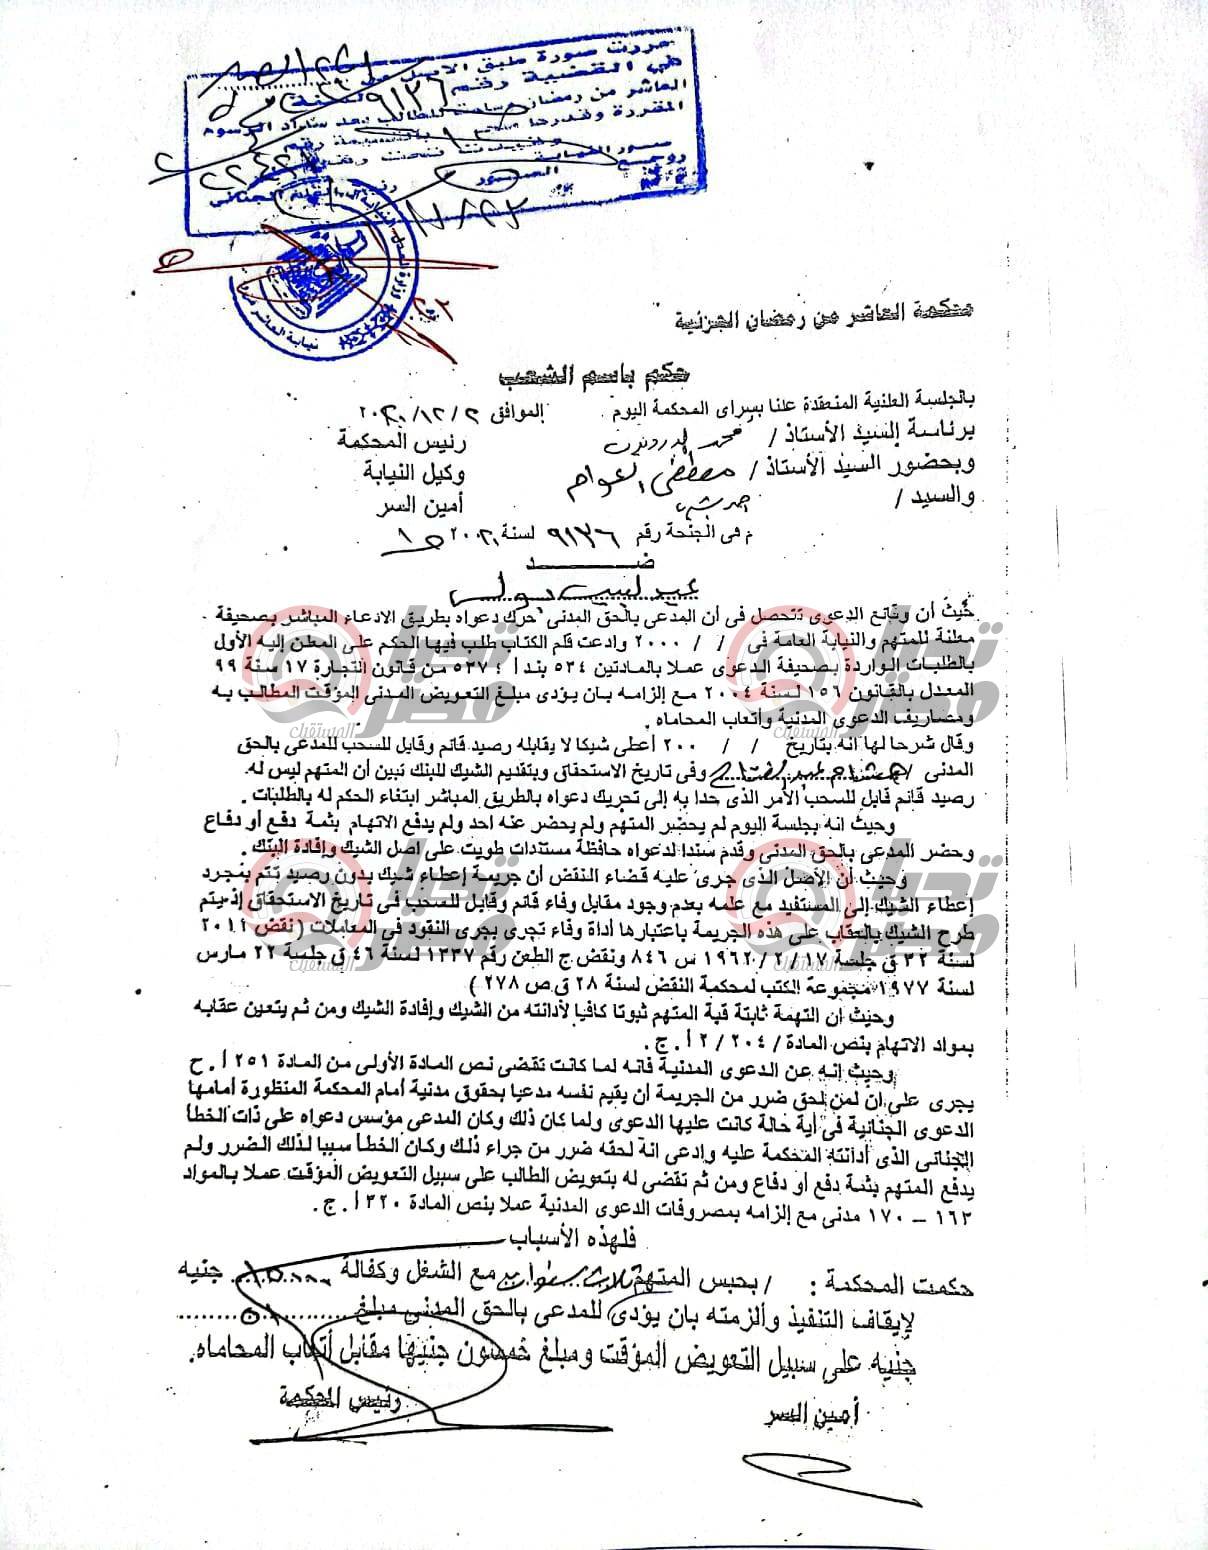 حررت صورة طبق الاصل من
في القضية رقم ٩١٣٦ لسنة
العاشر من رمضان وسلمت للطالب بعد سداد الرسوم
المقررة وقدرها بالقسيمة رقم
محكمة العاشر من رمضان الجزئية
حكم باسم الشعب
بالجلسة العلنية المنعقدة علنا بسراى المحكمة اليوم الموافق ٢ / ١٢ / ٢٠٢٠
برئاسة السيد الأستاذ / محمد رئيس المحكمة
وبحضور السيد الأستاذ / مصطفى العوام وكيل النيابة
والسيد / أمين السر
م فى الجنحة رقم ٩١٣٦ لسنة ٢٠٢٠
ضـــــــد
عيد لبيب
حيث أن وقائع الدعوى تتحصل فى أن المدعى بالحق المدنى حرك دعواه بطريق الادعاء المباشر بصحيفة
معلنة للمتهم والنيابة العامة فى / / ٢٠٠٠ وادعت قلم الكتاب طلب فيها الحكم على المعلن إليه الأول
بالطلبات الواردة بصحيفة الدعوى عملا بالمادتين ٥٣٤ بند أ ؛ ٥٣٧ من قانون التجارة ١٧ سنة ٩٩
المعدل بالقانون ١٥٦ لسنة ٢٠٠٤ مع إلزامه بان يؤدى مبلغ التعويض المدنى المؤقت المطالب به
ومصاريف الدعوى المدنية وأتعاب المحاماه .
وقال شرحا لها انه بتاريخ / / ٢٠٠ أعطى شيكا لا يقابله رصيد قائم وقابل للسحب للمدعى بالحق
المدنى / هشام عبد الفتاح وفى تاريخ الاستحقاق وبتقديم الشيك للبنك تبين أن المتهم ليس له
رصيد قائم قابل للسحب الأمر الذى حدا به إلى تحريك دعواه بالطريق المباشر ابتغاء الحكم له بالطلبات .
وحيث انه بجلسة اليوم لم يحضر المتهم ولم يحضر عنه احد ولم يدفع الاتهام بثمة دفع أو دفاع
وحضر المدعى بالحق المدنى وقدم سندا لدعواه حافظة مستندات طويت على اصل الشيك وإفادة البنك .
وحيث أن الأصل الذى جرى عليه قضاء النقض أن جريمة إعطاء شيك بدون رصيد تتم بمجرد
إعطاء الشيك إلى المستفيد مع علمه بعدم وجود مقابل وفاء قائم وقابل للسحب فى تاريخ الاستحقاق إذ يتم
طرح الشيك بالعقاب على هذه الجريمة باعتبارها أداة وفاء تجرى بجرى النقود فى المعاملات ( نقض ٢٠١١
لسنة ٣٢ ق جلسة ١٧ / ٢ / ١٩٦٢ س ٨٤٦ ونقض ج الطعن رقم ١٣٣٧ لسنة ٤٦ ق جلسة ٢٢ مارس
لسنة ١٩٧٧ مجموعة الكتب لمحكمة النقض لسنة ٢٨ ق ص ٢٧٨ )
وحيث ان التهمة ثابتة قبة المتهم ثبوتا كافيا لأدانته من الشيك وإفادة الشيك ومن ثم يتعين عقابه
بمواد الاتهام بنص المادة / ٢٠٤ / ٢ أ . ج .
وحيث إنه عن الدعوى المدنية فانه لما كانت تقضى نص المادة الأولى من المادة ٢٥١ أ . ح
يجرى على ان لمن لحق ضرر من الجريمة أن يقيم نفسه مدعيا بحقوق مدنية أمام المحكمة المنظورة أمامها
الدعوى الجنائية فى أية حالة كانت عليها الدعوى ولما كان ذلك وكان المدعى مؤسس دعواه على ذات الخطأ
الجنائى الذى أدانته المحكمة عليه وإدعى انة لحقه ضرر من جراء ذلك وكان الخطأ سببا لذلك الضرر ولم
يدفع المتهم بثمة دفع أو دفاع ومن ثم تقضى له بتعويض الطالب على سبيل التعويض المؤقت عملا بالمواد
١٦٣ – ١٧٠ مدنى مع إلزامه بمصروفات الدعوى المدنية عملا بنص المادة ٣٢٠ أ . ج .
فلهذه الأسباب
حكمت المحكمة : / بحبس المتهم ثلاث سنوات مع الشغل وكفالة جنيه
لإيقاف التنفيذ وألزمته بان يؤدى للمدعى بالحق المدنى مبلغ
جنيه على سبيل التعويض المؤقت ومبلغ خمسون جنيها مقابل أتعاب المحاماه.
أمين السر رئيس المحكمة
تحيا مصر
المستقبل